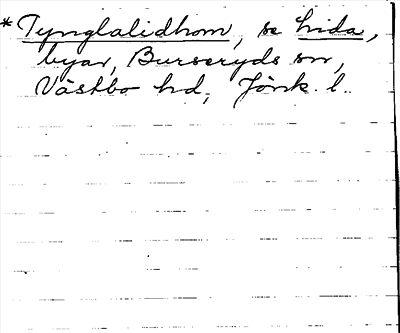 *Tynglalidhom, se Lida,
byar, Burseryds sn,
Västbo hd, Jönk. l.